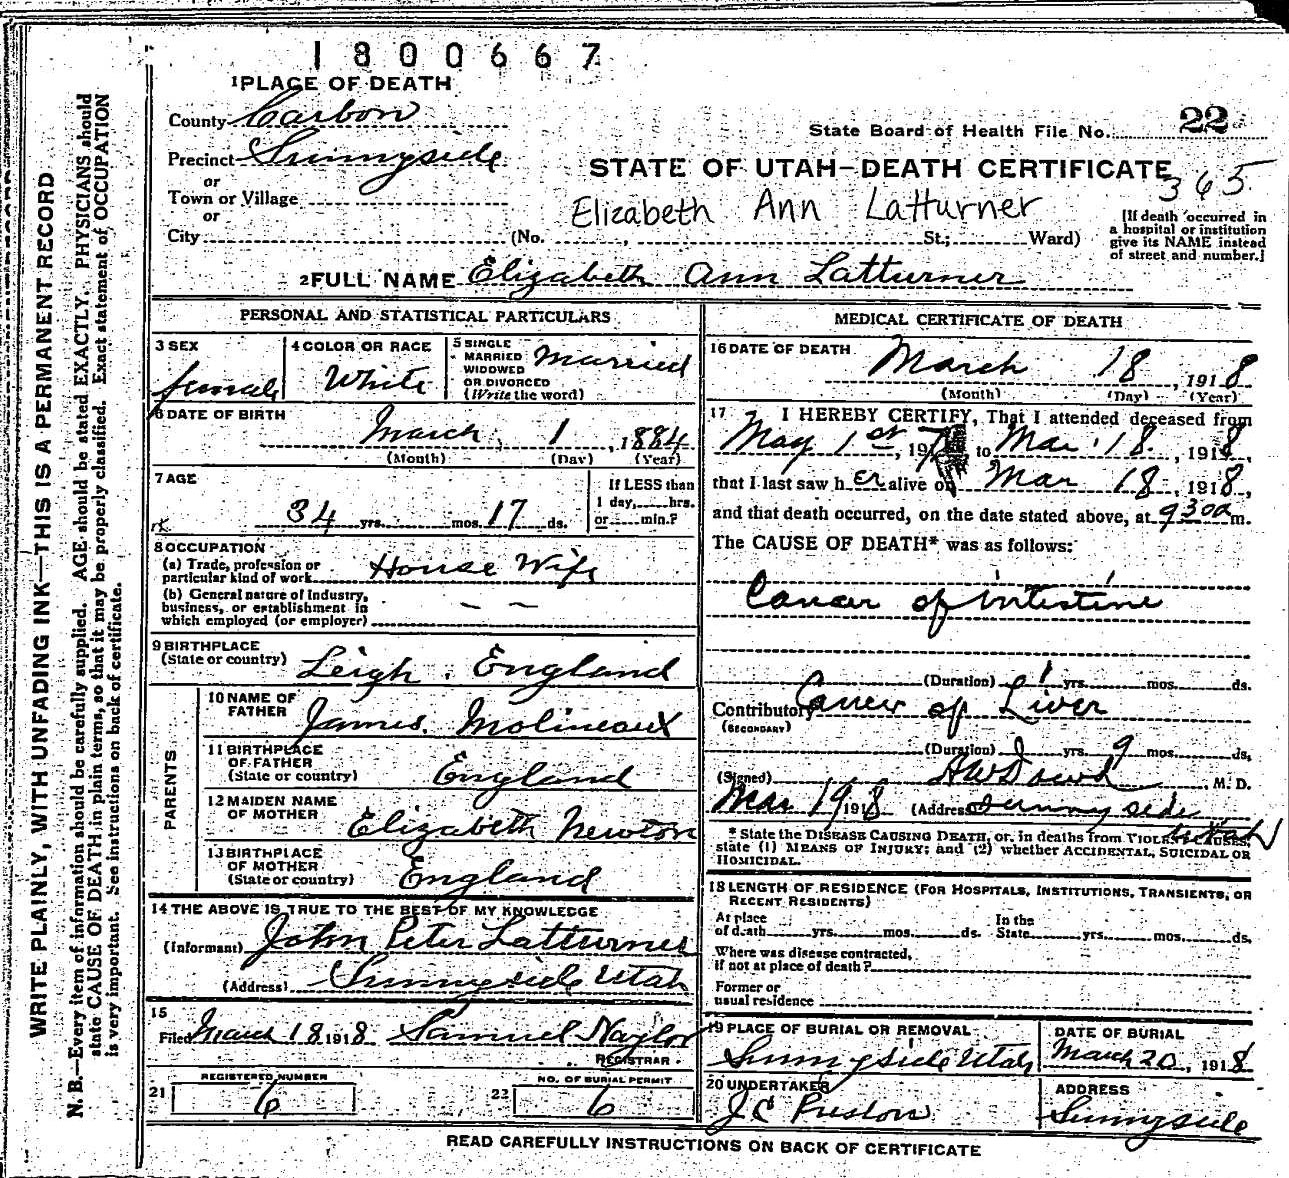 1800667
1 PLACE OF DEATH
County Carbon
State Board of Health File No. 22
Precinct Sunnyside
STATE OF UTAH—DEATH CERTIFICATE
365
or
Town or Village
or
Elizabeth Ann Latturner
City (No. , St.; Ward)
[If death occurred in
a hospital or institution
give its NAME instead
of street and number.]
2 FULL NAME Elizabeth Ann Latturner
PERSONAL AND STATISTICAL PARTICULARS
3 SEX
female
4 COLOR OR RACE
White
5 SINGLE
MARRIED
WIDOWED
OR DIVORCED
(Write the word)
Married
6 DATE OF BIRTH
March 1, 1884
(Month) (Day) (Year)
7 AGE
34 yrs. mos. 17 ds.
If LESS than
1 day, hrs.
or min.?
8 OCCUPATION
(a) Trade, profession or
particular kind of work House Wife
(b) General nature of Industry,
business, or establishment in
which employed (or employer) — —
9 BIRTHPLACE
(State or country) Leigh. England
PARENTS
10 NAME OF
FATHER James. Molineaux
11 BIRTHPLACE
OF FATHER
(State or country) England
12 MAIDEN NAME
OF MOTHER Elizabeth Newton
13 BIRTHPLACE
OF MOTHER
(State or country) England
14 THE ABOVE IS TRUE TO THE BEST OF MY KNOWLEDGE
(Informant) John Peter Latturner
(Address) Sunnyside Utah
15
Filed March 18 1918 Samuel Naylor
REGISTRAR.
21 REGISTERED NUMBER
6
22 NO. OF BURIAL PERMIT
6
MEDICAL CERTIFICATE OF DEATH
16 DATE OF DEATH
March 18, 1918
(Month) (Day) (Year)
17 I HEREBY CERTIFY, That I attended deceased from
May 1st, 197 to Mar. 18., 1918,
that I last saw her alive on Mar 18, 1918,
and that death occurred, on the date stated above, at 9 30 a m.
The CAUSE OF DEATH* was as follows:
Cancer of intestine
(Duration) 1 yrs. mos. ds.
Contributory Cancer of Liver
(SECONDARY)
(Duration) 0 yrs. 9 mos. ds.
(Signed) A W Dowd M. D.
Mar 19 1918 (Address) Sunnyside
Utah
* State the DISEASE CAUSING DEATH, or, in deaths from VIOLENT CAUSES,
state (1) MEANS OF INJURY; and (2) whether ACCIDENTAL, SUICIDAL OR
HOMICIDAL.
18 LENGTH OF RESIDENCE (FOR HOSPITALS, INSTITUTIONS, TRANSIENTS, OR
RECENT RESIDENTS)
At place
of death yrs. mos. ds.
In the
State yrs. mos. ds.
Where was disease contracted,
if not at place of death?
Former or
usual residence
19 PLACE OF BURIAL OR REMOVAL
Sunnyside Utah
DATE OF BURIAL
March 20, 1918
20 UNDERTAKER
J C Preston
ADDRESS
Sunnyside
READ CAREFULLY INSTRUCTIONS ON BACK OF CERTIFICATE
WRITE PLAINLY, WITH UNFADING INK—THIS IS A PERMANENT RECORD
N. B.—Every item of information should be carefully supplied. AGE should be stated EXACTLY. PHYSICIANS should
state CAUSE OF DEATH in plain terms, so that it may be properly classified. Exact statement of OCCUPATION
is very important. See instructions on back of certificate.